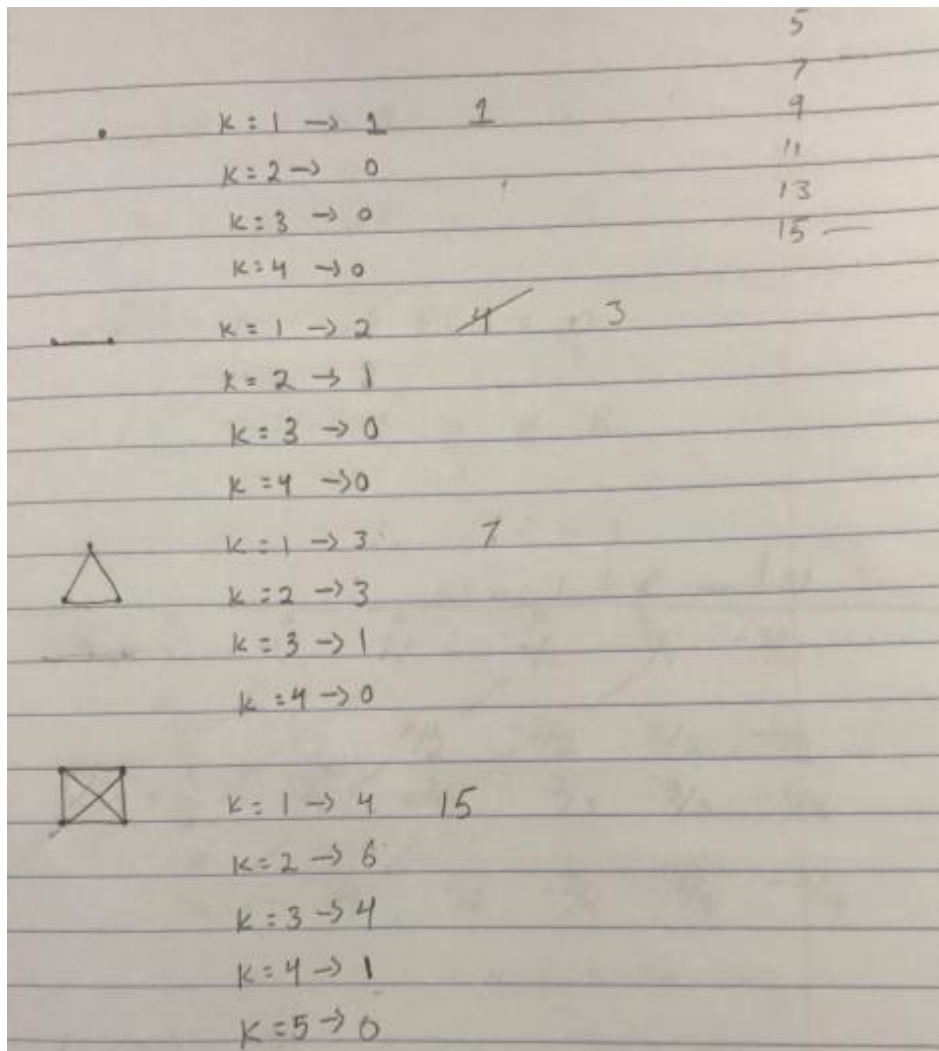 5
7
9
11
13
15 —
K = 1 → 1 1
K = 2 → 0
K = 3 → 0
K = 4 → 0
K = 1 → 2 4 3
K = 2 → 1
K = 3 → 0
K = 4 → 0
K = 1 → 3 7
K = 2 → 3
K = 3 → 1
K = 4 → 0
K = 1 → 4 15
K = 2 → 6
K = 3 → 4
K = 4 → 1
K = 5 → 0